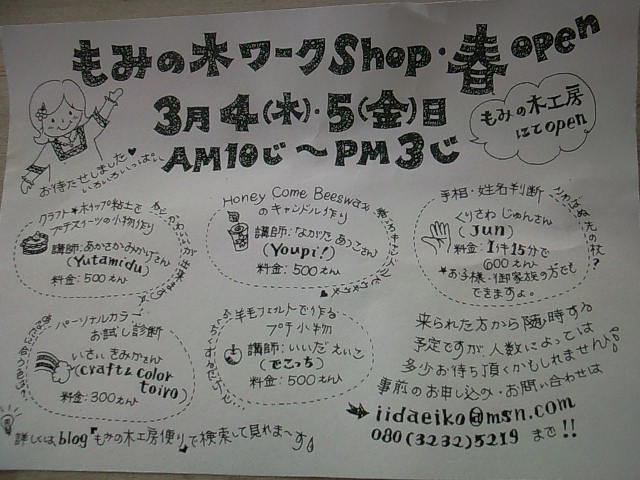 もみの木ワークShop・春open
3月4(木)・5(金)日
AM10じ〜PM3じ
もみの木工房
にてopen
お待たせしました♥
クラフト★ホイップ粘土で
プチスイーツの小物作り
講師:あかさかみかりさん
(Yutamidu)
料金:500えん
Honey Come Beeswax
のキャンドル作り
講師:ながたあつこさん
(Youpi!)
料金:500えん
手相・姓名判断
くりさわじゅんさん
(Jun)
料金:1件15分で
600えん
★お子様・御家族の方でも
できますよ。
パーソナルカラー
お試し診断
いさいきみかさん
(craft & color
toiro)
料金:300えん
羊毛フェルトで作る
プチ小物
講師:いいだえいこ
(でこっち)
料金:500えん
来られた方から随時する
予定ですが、人数によっては
多少お待ち頂くかもしれません。
事前のお申し込み・お問い合わせは
➔iidaeiko@msn.com
080(3232)5219まで!!
詳しくはblog『もみの木工房便り』で検索して見れま〜す♪